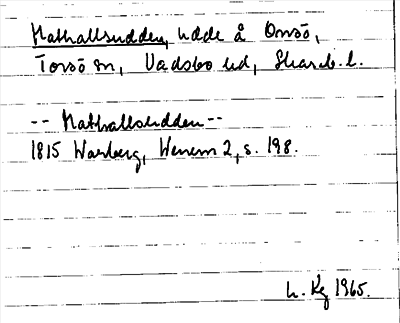 Hathallsudden, udde å Onsö,
Torsö sn, Vadsbo hd, Skarab. l.
-- Hathallsudden --
1815 Warberg, Wenern 2, s. 198.
L. Kg 1965.